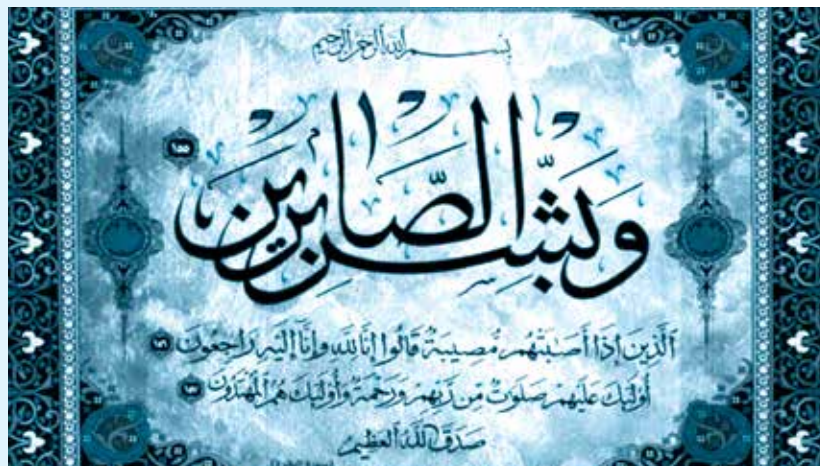 بسم الله الرحمن الرحيم
وَبَشِّرِ الصَّابِرِينَ ١٥٥
ٱلَّذِينَ إِذَآ أَصَٰبَتْهُم مُّصِيبَةٌ قَالُوٓا۟ إِنَّا لِلَّهِ وَإِنَّآ إِلَيْهِ رَٰجِعُونَ ١٥٦
أُو۟لَٰٓئِكَ عَلَيْهِمْ صَلَوَٰتٌ مِّن رَّبِّهِمْ وَرَحْمَةٌ وَأُو۟لَٰٓئِكَ هُمُ ٱلْمُهْتَدُونَ ١٥٧
صدق الله العظيم